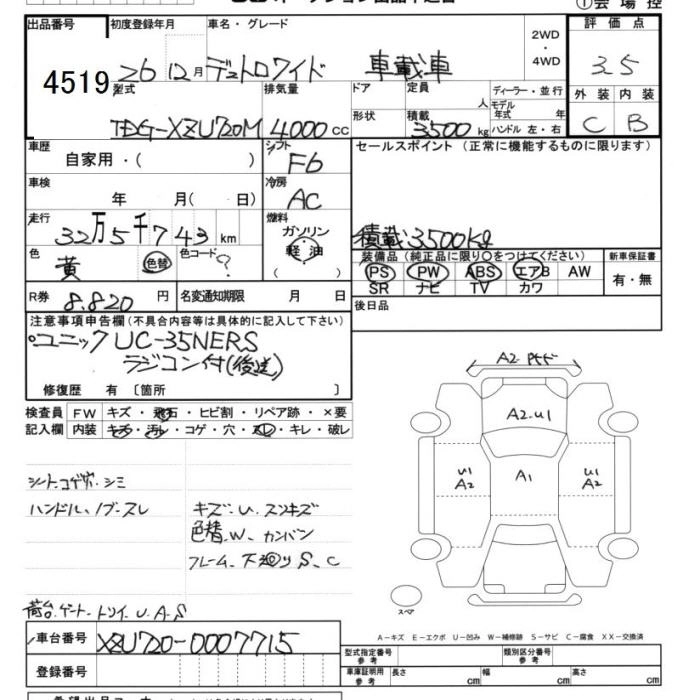 出品番号 初度登録年月 車名・グレード 2WD・4WD 評価点
4519 26 12月 デュトロワイド 車載車 3.5
型式 排気量 ドア 定員 人 ディーラー・並行 外装 内装
TDG-XZU720M 4000cc 形状 積載 3500kg モデル年式 年 ハンドル 左・右 C B
車歴 シフト セールスポイント(正常に機能するものに限ります)
自家用・( ) F6
車検 冷房
年 月( 日) AC
走行 燃料
32万5千743km ガソリン 積載3500Kg
軽油
( )
色 色替 色コード 装備品(純正品に限り○をつけてください) 新車保証書
黄 ? PS PW ABS エアB AW 有・無
SR ナビ TV カワ
R券 8.820円 名変通知期限 月 日 後日品
注意事項申告欄(不具合内容等は具体的に記入して下さい)
ユニック UC-35NERS
ラジコン付(後送)
修復歴 有〔箇所 〕
検査員 FW キズ・飛石・ヒビ割・リペア跡・×要
記入欄 内装 キズ・汚レ・コゲ・穴・スレ・キレ・破レ
シートコゲ穴.シミ
ハンドル、ノブ-スレ
キズ・U.スンキズ
色替.W.カンバン
フレーム、下廻りS、C
荷台.ゲート.トリイ.U.A.S
A2
A2.U1
U1 A2
A1
U1 A2
スペア
A-キズ E-エクボ U-凹み W-補修跡 S-サビ C-腐食 XX-交換済
車台番号 XZU720-0007715
登録番号
型式指定番号 参考 類別区分番号 参考
車庫証明用 参考 長さ cm 幅 cm 高さ cm